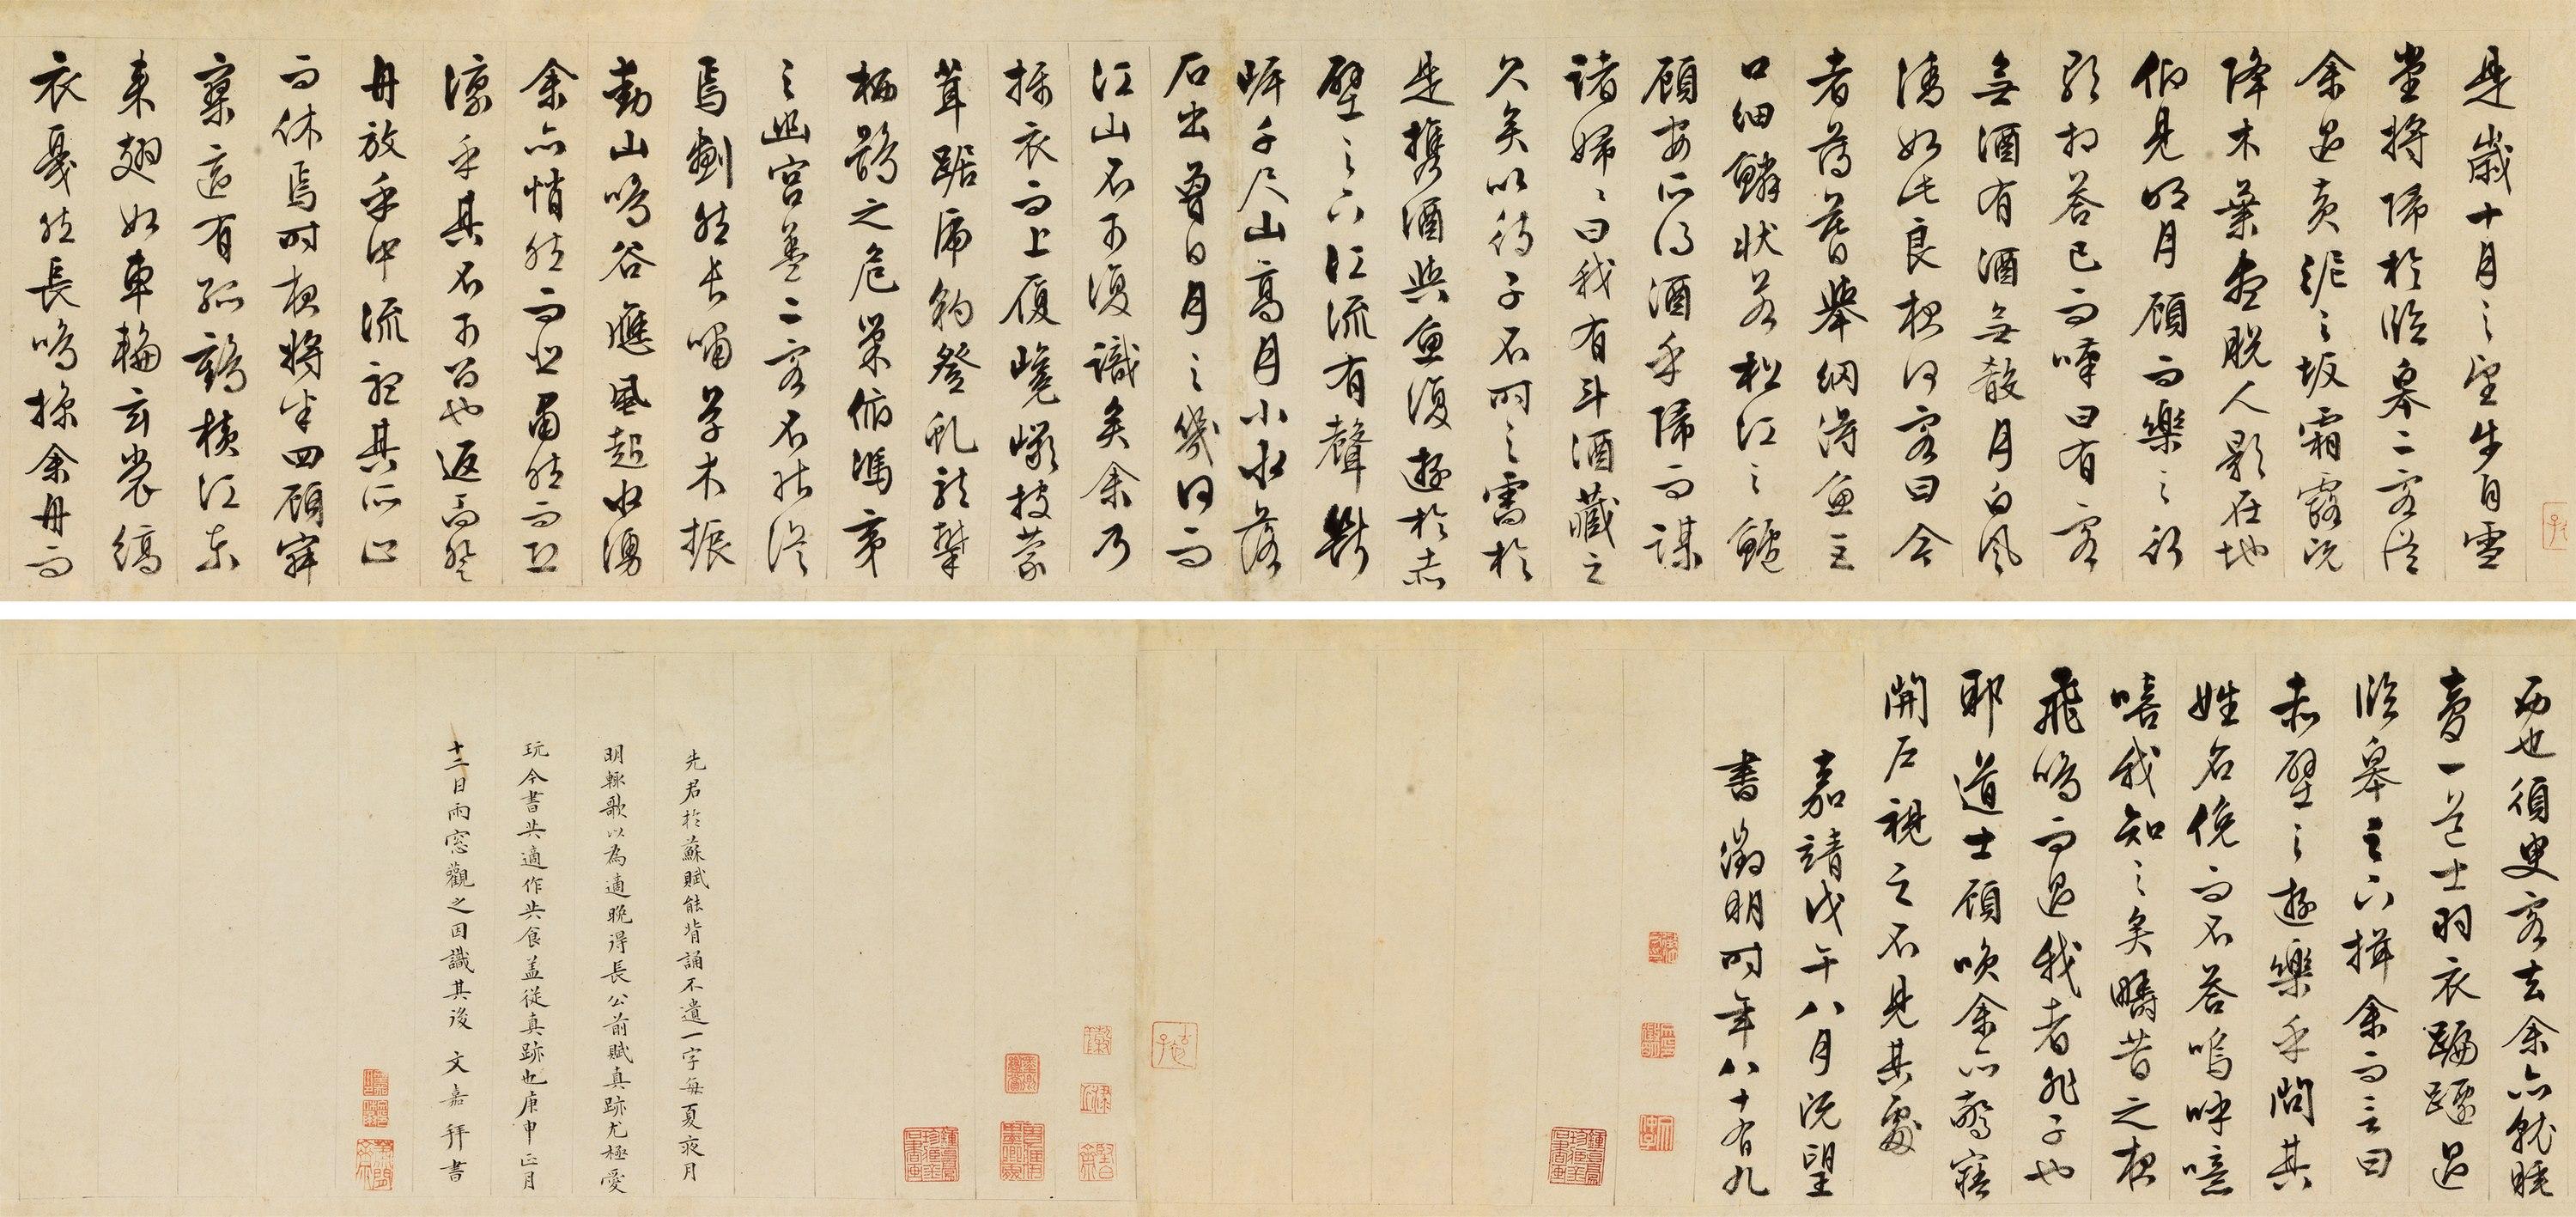 是歲十月之望步自雪
堂將歸於臨皋二客從
余過黃泥之坂霜露既
降木葉盡脫人影在地
仰見明月顧而樂之行
歌相答已而嘆曰有客
無酒有酒無殽月白風
清如此良夜何客曰今
者薄暮舉網得魚巨
口細鱗狀若松江之鱸
顧安所得酒乎歸而謀
諸婦婦曰我有斗酒藏之
久矣以待子不時之需於
是攜酒與魚復遊於赤
壁之下江流有聲斷
岸千尺山高月小水落
石出曾日月之幾何而
江山不可復識矣余乃
攝衣而上履巉巖披蒙
茸踞虎豹登虬龍攀
栖鶻之危巢俯馮夷
之幽宮蓋二客不能從
焉劃然長嘯草木振
動山鳴谷應風起水湧
余亦悄然而悲肅然而恐
凜乎其不可留也返而登
舟放乎中流聽其所止
而休焉時夜將半四顧寂
寥適有孤鶴橫江東
來翅如車輪玄裳縞
衣戛然長鳴掠余舟而
西也須臾客去余亦就睡
夢一道士羽衣蹁躚過
臨皋之下揖余而言曰
赤壁之遊樂乎問其
姓名俛而不答嗚呼噫
嘻我知之矣疇昔之夜
飛鳴而過我者非子也
耶道士顧喚余亦驚寤
開戶視之不見其處
嘉靖戊午八月既望
書徵明時年八十有九
先君於蘇賦能背誦不遺一字每夏夜月
明輒歌以為適晚得長公前賦真跡尤極愛
玩今書共適作共食蓋從真跡也庚申正月
十二日雨窓觀之因識其後 文嘉拜書